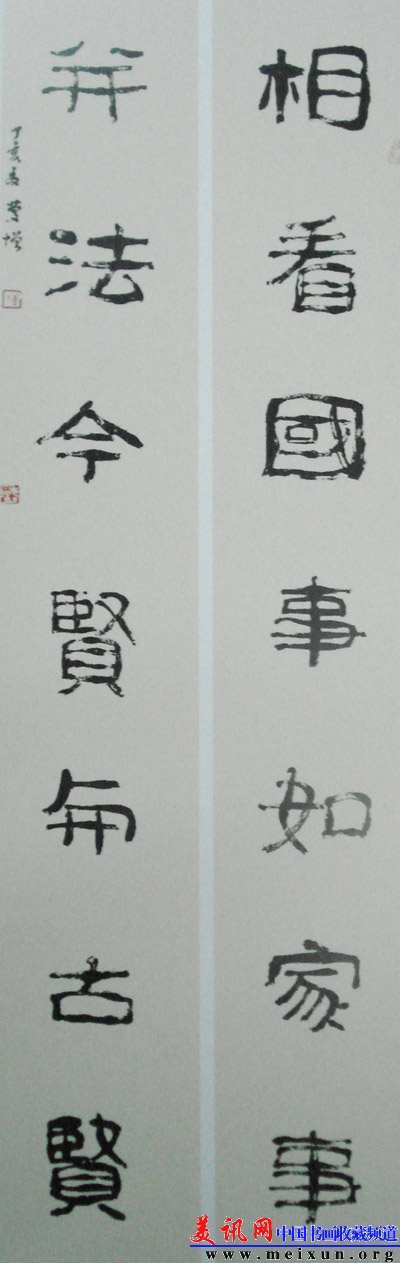 相看國事如家事
并法今賢與古賢
丁亥
美讯网 中国书画收藏频道
www.meixun.org